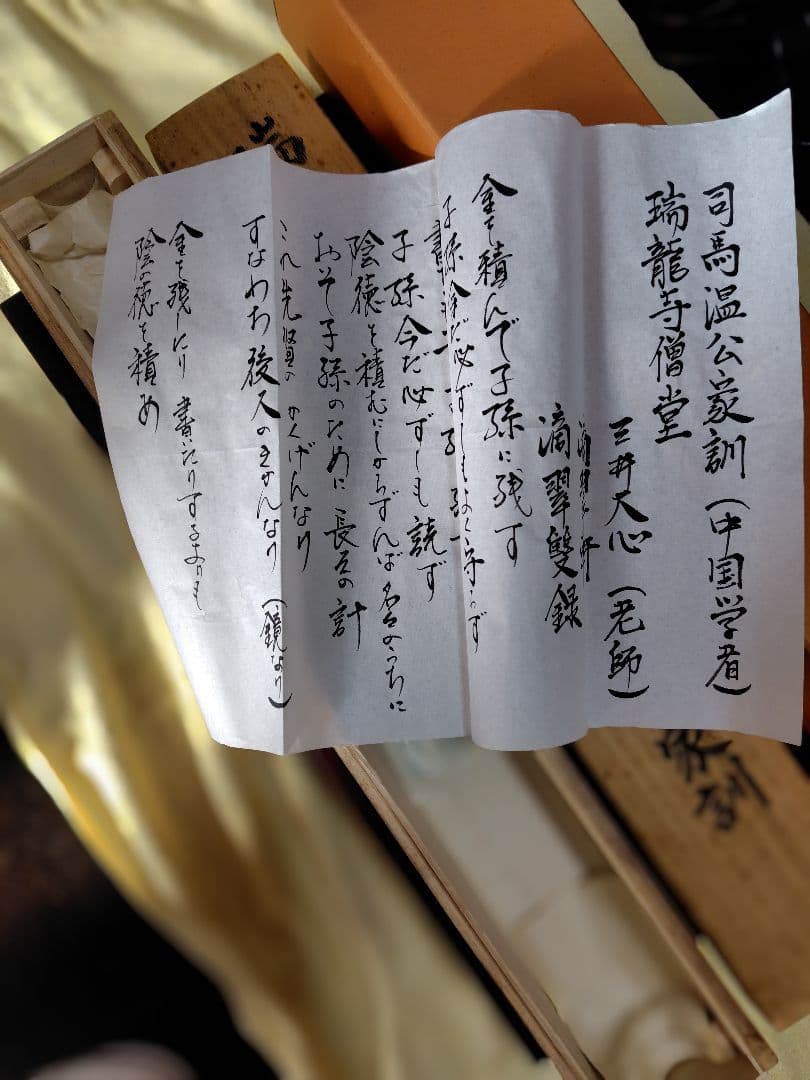 司馬温公家訓(中国学者)
瑞龍寺僧堂
三井大心(老師)
滴翠軒
滴翠雙録
金を積んで子孫に残す
子孫今だ必ずしもよく守らず
書を
子孫今だ必ずしも読ず
陰徳を積むにしからずんば 名々のうちに
おそ子孫のために 長久の計
これ先賢の かくげんなり
すなわち後人のきかんなり (鏡なり)
金を残したり 書いたりするよりも
陰の徳を積め
家訓